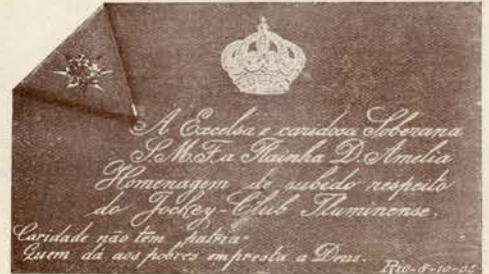 A Excelsa e caridosa Soberana
S. M. F. a Rainha D. Amelia
Homenagem de subido respeito
do Jockey-Club Fluminense.
Caridade não tem patria-
Quem dá aos pobres empresta a Deus.
Rio-8-10-02